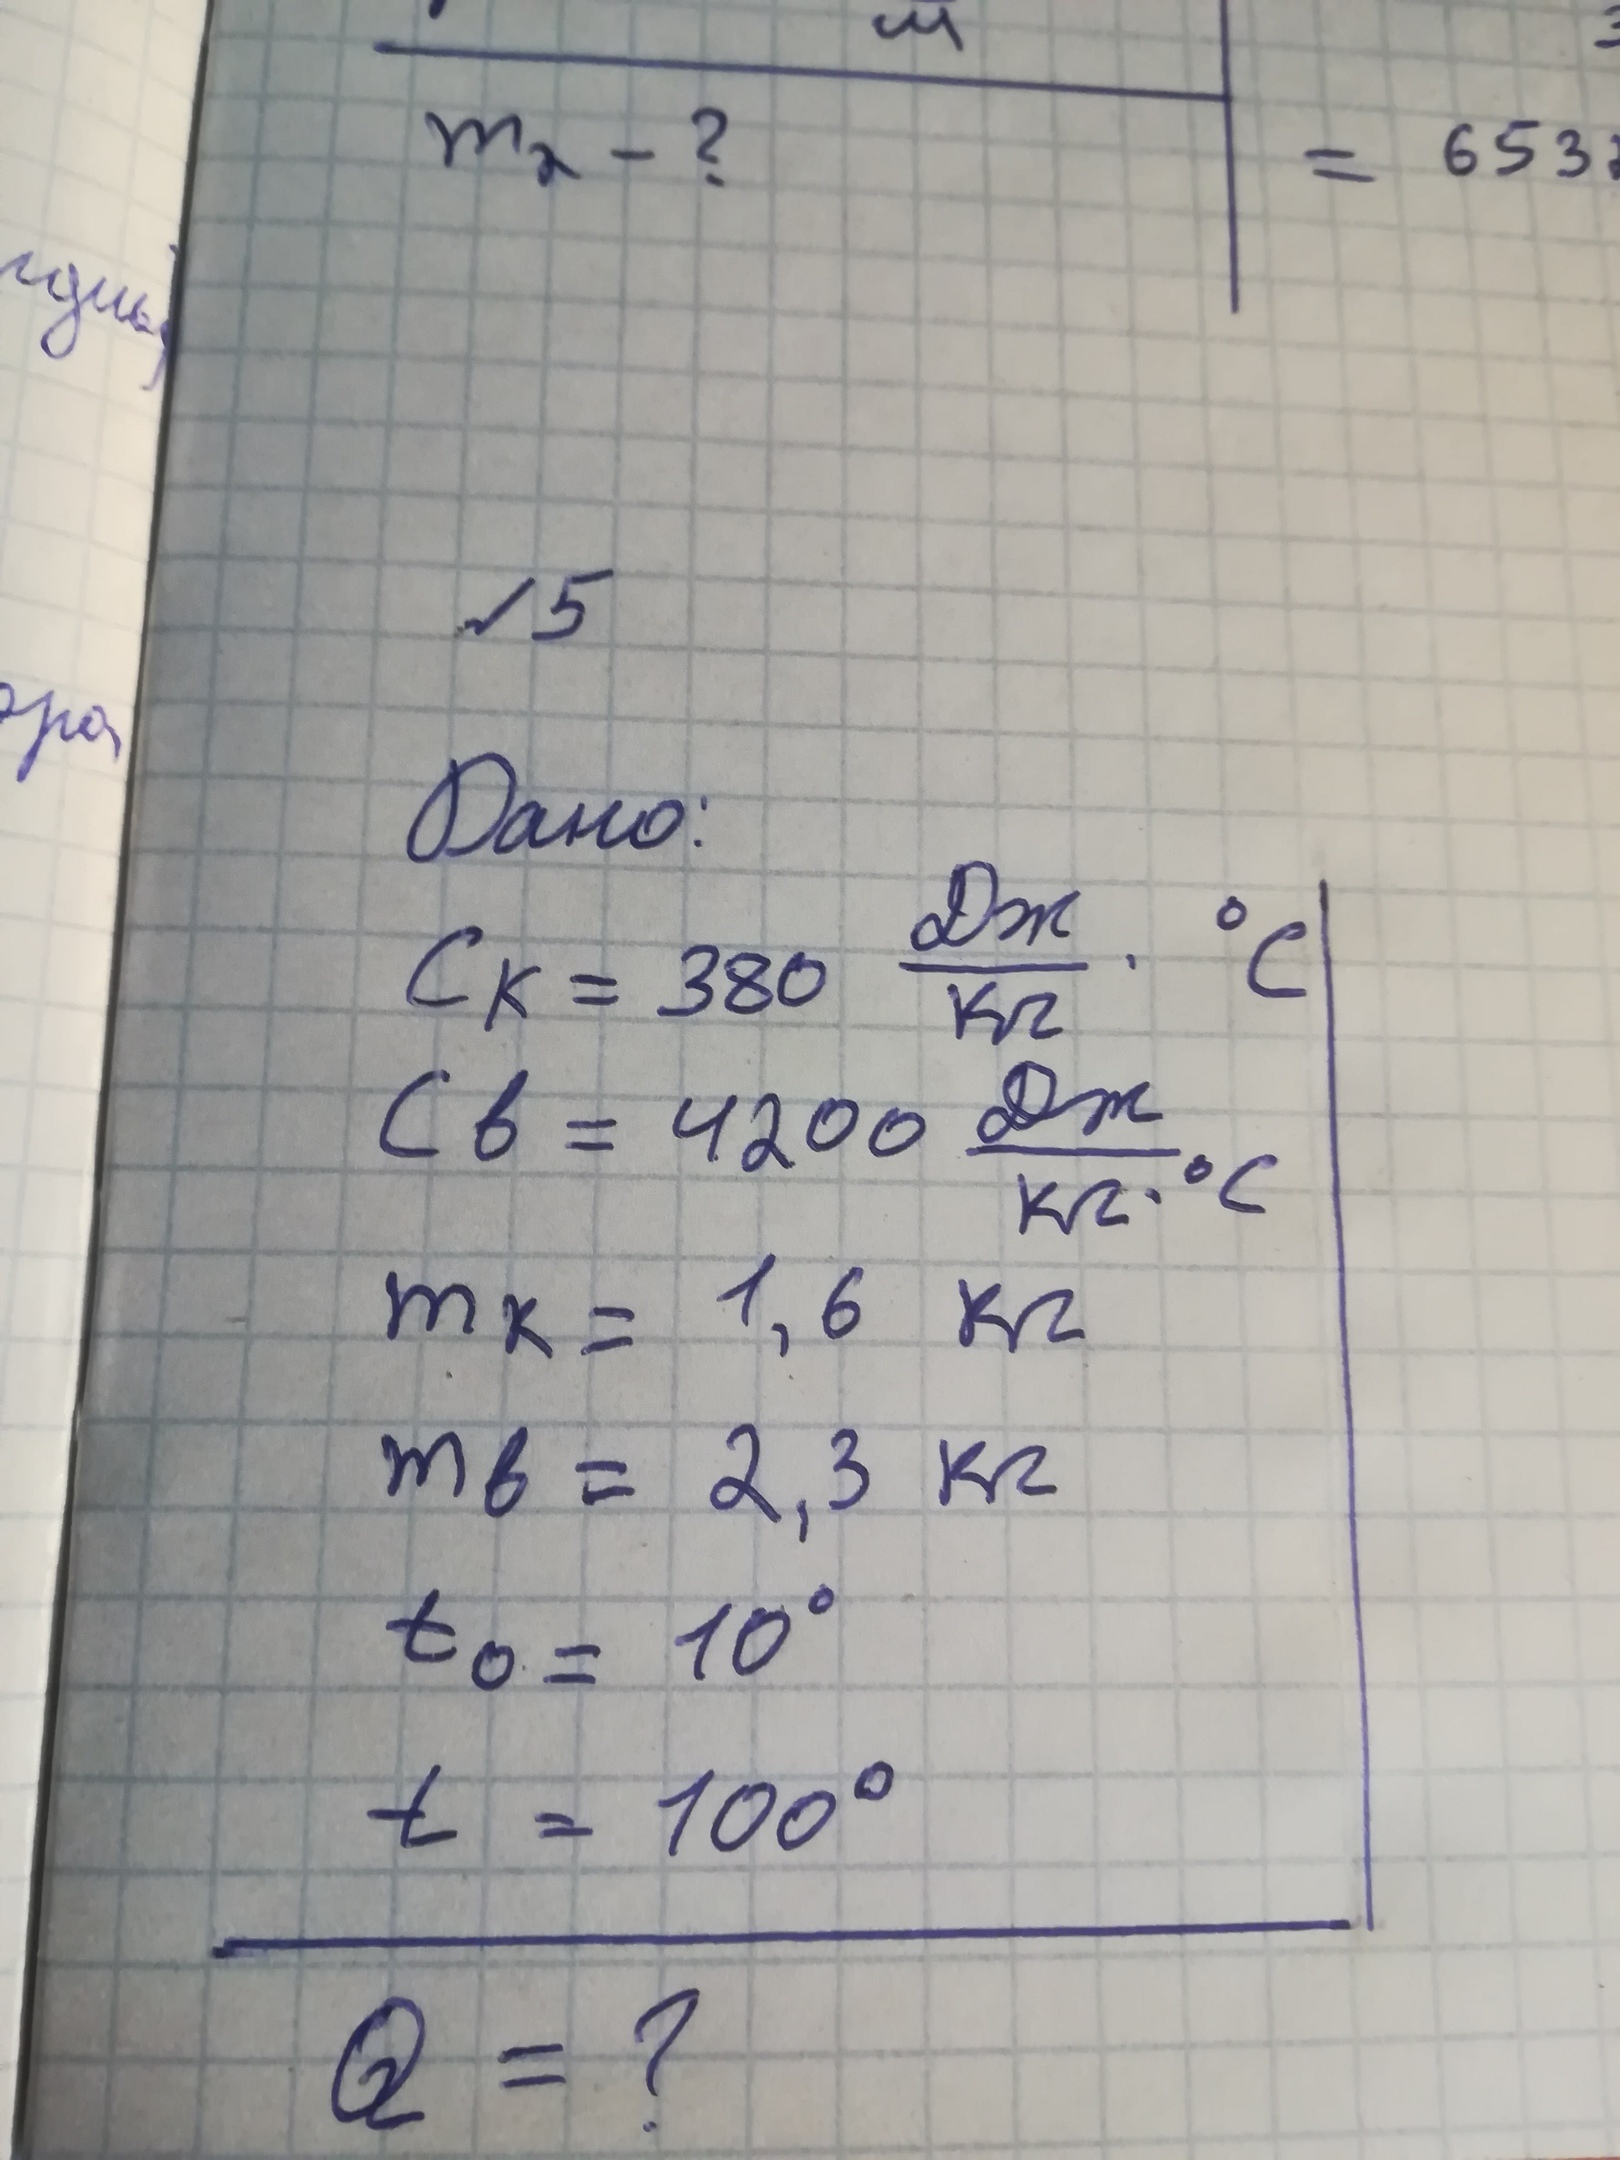 m
mх - ?
= 653
√5
Дано:
Cк = 380 Дж/кг · °C
Cв = 4200 Дж/кг·°C
mк = 1,6 кг
mв = 2,3 кг
t₀ = 10°
t = 100°
Q = ?